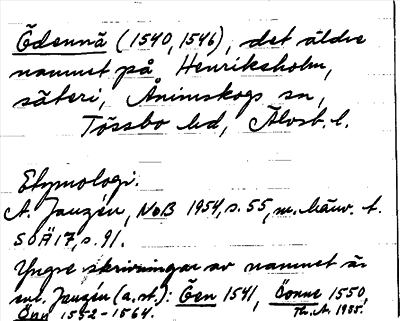 Ödennä (1540, 1546), det äldre
namnet på Henriksholm,
säteri, Ånimskogs sn,
Tössbo hd, Älvsb. l.
Etymologi.
A. Janzén, NoB 1954, s. 55, m. hänv. t.
SOÄ 17, s. 91.
Yngre skrivningar av namnet är
enl. Janzén (a. st.): Öen 1541, Öonne 1550,
Önn 1552-1564. Th. A. 1985.